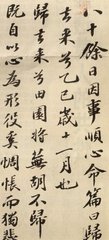 八十餘日因事順心命篇曰歸
去来兮乙巳歲十一月也
歸去来兮田園將蕪胡不歸
既自以心為形役奚惆悵而獨悲